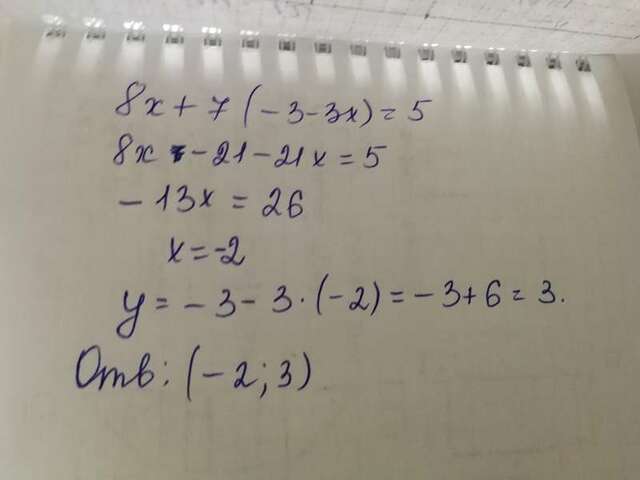 8x + 7 (-3-3x) = 5
8x -21-21x = 5
-13x = 26
x = -2
y = -3-3·(-2) = -3+6 = 3.
Отв: (-2; 3)